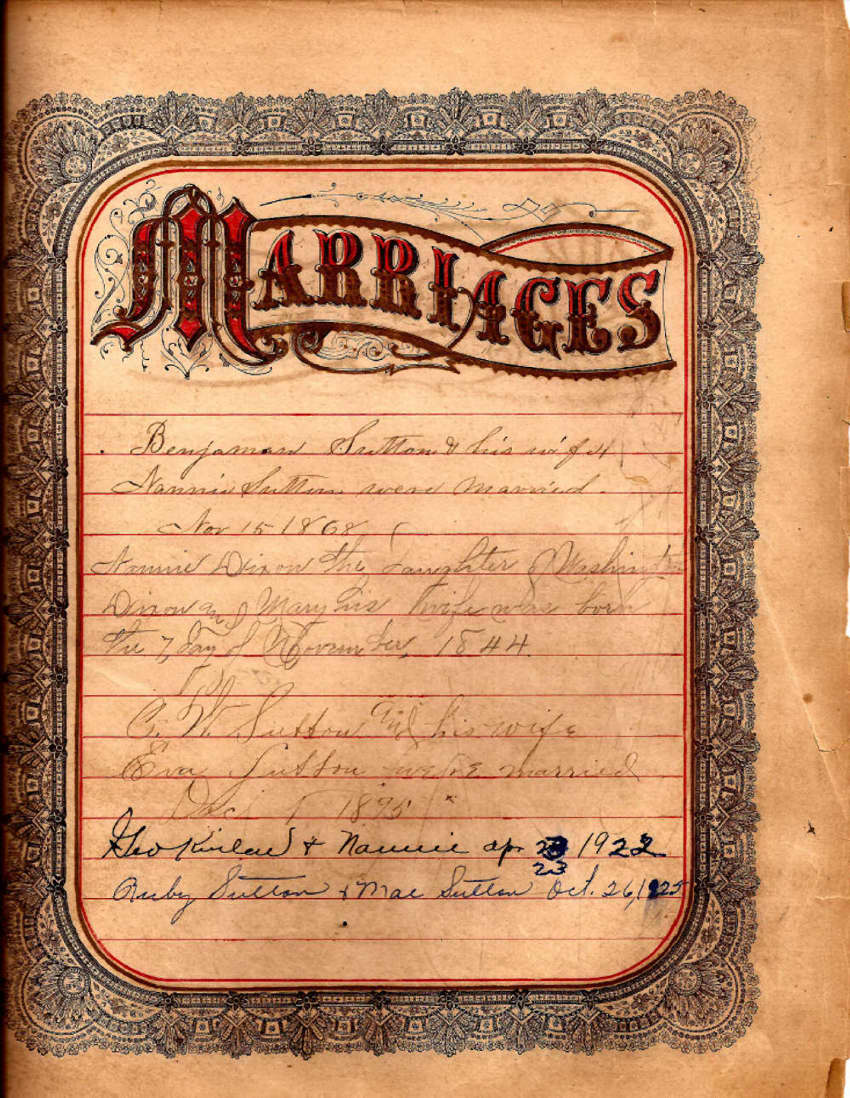 MARRIAGES
Benjaman Sutton & his wife
Nannie Sutton were married
Nov 15 1868
Nannie Dixon the daughter of Washington
Dixon and Mary his wife was born
the 7 day of November, 1844
C. W. Sutton and his wife
Eva Sutton were married
Dec 1 1895
Geo & Nannie apr 23 1922
23
Ruby Sutton & Mae Sutton Oct. 26, 1925